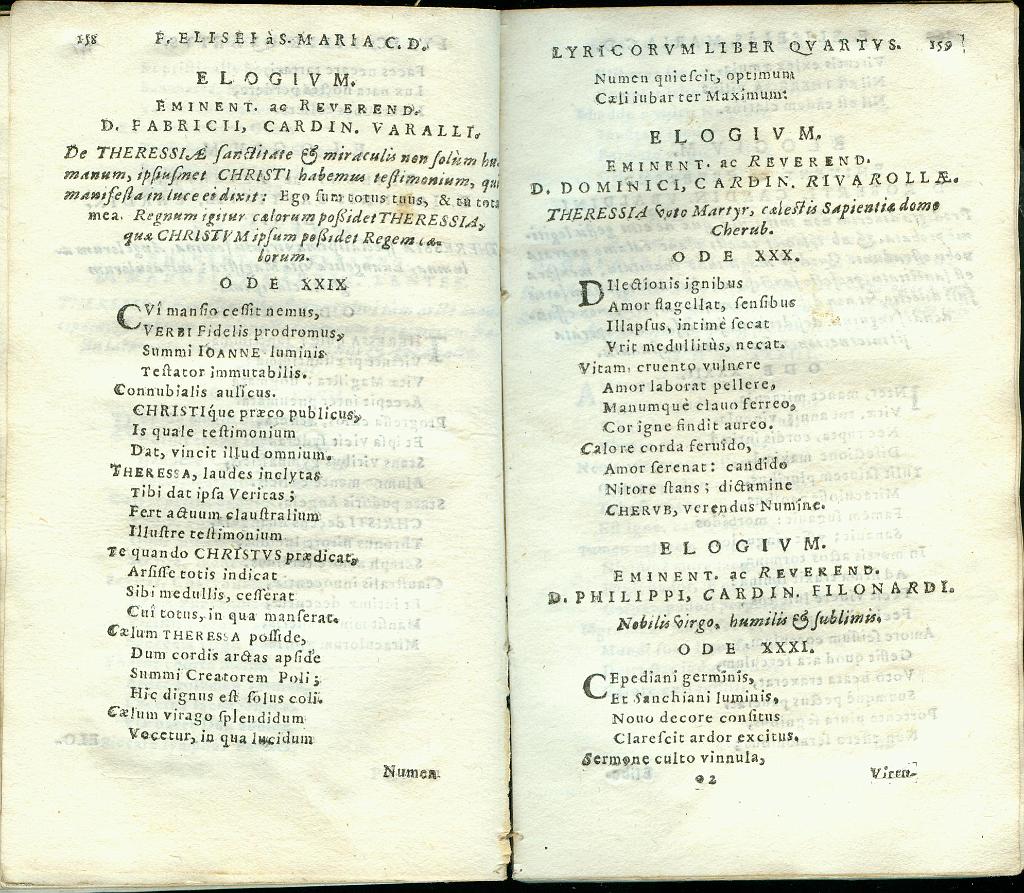 158 F. ELISEI à S. MARIA C. D.
ELOGIVM.
EMINENT. ac REVEREND.
D. FABRICII, CARDIN. VARALLI.
De THERESSIÆ sanctitate & miraculis non solùm hu
manum, ipsiusmet CHRISTI habemus testimonium, qui
manifesta in luce ei dixit: Ego sum totus tuus, & tu tota
mea. Regnum igitur cælorum possidet THERESSIA,
quæ CHRISTVM ipsum possidet Regem cæ-
lorum.
ODE XXIX
CVi mansio cessit nemus,
VERBI Fidelis prodromus,
Summi IOANNE luminis
Testator immutabilis.
Connubialis aulicus.
CHRISTIque præco publicus,
Is quale testimonium
Dat, vincit illud omnium.
THERESSA, laudes inclytas
Tibi dat ipsa Veritas;
Fert actuum claustralium
Illustre testimonium
Te quando CHRISTVS prædicat,
Arsisse totis indicat
Sibi medullis, cesserat
Cui totus, in qua manserat.
Cælum THERESSA posside,
Dum cordis arctas apside
Summi Creatorem Poli;
Hic dignus est solus coli.
Cælum virago splendidum
Vocetur, in qua lucidum
Numen
LYRICORVM LIBER QVARTVS. 159
Numen quiescit, optimum
Cæli iubar ter Maximum.
ELOGIVM.
EMINENT. ac REVEREND.
D. DOMINICI, CARDIN. RIVAROLLÆ.
THERESSIA voto Martyr, cælestis Sapientiæ dono
Cherub.
ODE XXX.
DIlectionis ignibus
Amor flagellat, sensibus
Illapsus, intimè secat
Vrit medullitùs, necat.
Vitam, cruento vulnere
Amor laborat pellere,
Manumquè clauo ferreo,
Cor igne findit aureo.
Calore corda feruido,
Amor serenat: candido
Nitore stans; dictamine
CHERVB, verendus Numine.
ELOGIVM.
EMINENT. ac REVEREND.
D. PHILIPPI, CARDIN. FILONARDI.
Nobilis virgo, humilis & sublimis.
ODE XXXI.
CEpediani germinis,
Et Sanchiani luminis,
Nouo decore consitus
Clarescit ardor excitus.
Sermone culto vinnula,
2 Viren-